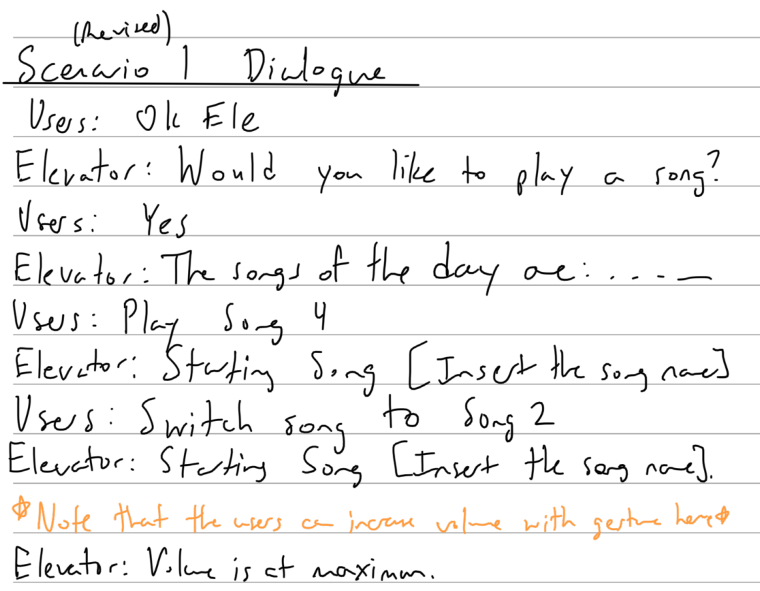 (Revised)
Scenario 1 Dialogue
Users: Ok Ele
Elevator: Would you like to play a song?
Users: Yes
Elevator: The songs of the day are: . . . . _
Users: Play Song 4
Elevator: Starting Song [Insert the song name]
Users: Switch song to Song 2
Elevator: Starting Song [Insert the song name].
*Note that the users can increase volume with gesture here*
Elevator: Volume is at maximum.